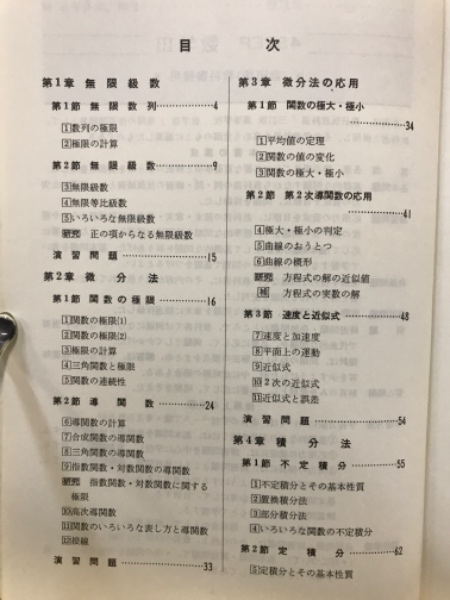 目次
第1章 無限級数
第1節 無限数列…………4
1 数列の極限
2 極限の計算
第2節 無限級数…………9
3 無限級数
4 無限等比級数
5 いろいろな無限級数
研究 正の項からなる無限級数
演習問題…………15
第2章 微分法
第1節 関数の極限…………16
1 関数の極限(1)
2 関数の極限(2)
3 極限の計算
4 三角関数と極限
5 関数の連続性
第2節 導関数…………24
6 導関数の計算
7 合成関数の導関数
8 三角関数の導関数
9 指数関数・対数関数の導関数
研究 指数関数・対数関数に関する
極限
10 高次導関数
11 関数のいろいろな表し方と導関数
12 接線
演習問題…………33
第3章 微分法の応用
第1節 関数の極大・極小
…………34
1 平均値の定理
2 関数の値の変化
3 関数の極大・極小
第2節 第2次導関数の応用
…………41
4 極大・極小の判定
5 曲線のおうとつ
6 曲線の概形
研究 方程式の解の近似値
補 方程式の実数の解
第3節 速度と近似式…………48
7 速度と加速度
8 平面上の運動
9 近似式
10 2次の近似式
11 近似式と誤差
演習問題…………54
第4章 積分法
第1節 不定積分…………55
1 不定積分とその基本性質
2 置換積分法
3 部分積分法
4 いろいろな関数の不定積分
第2節 定積分…………62
5 定積分とその基本性質